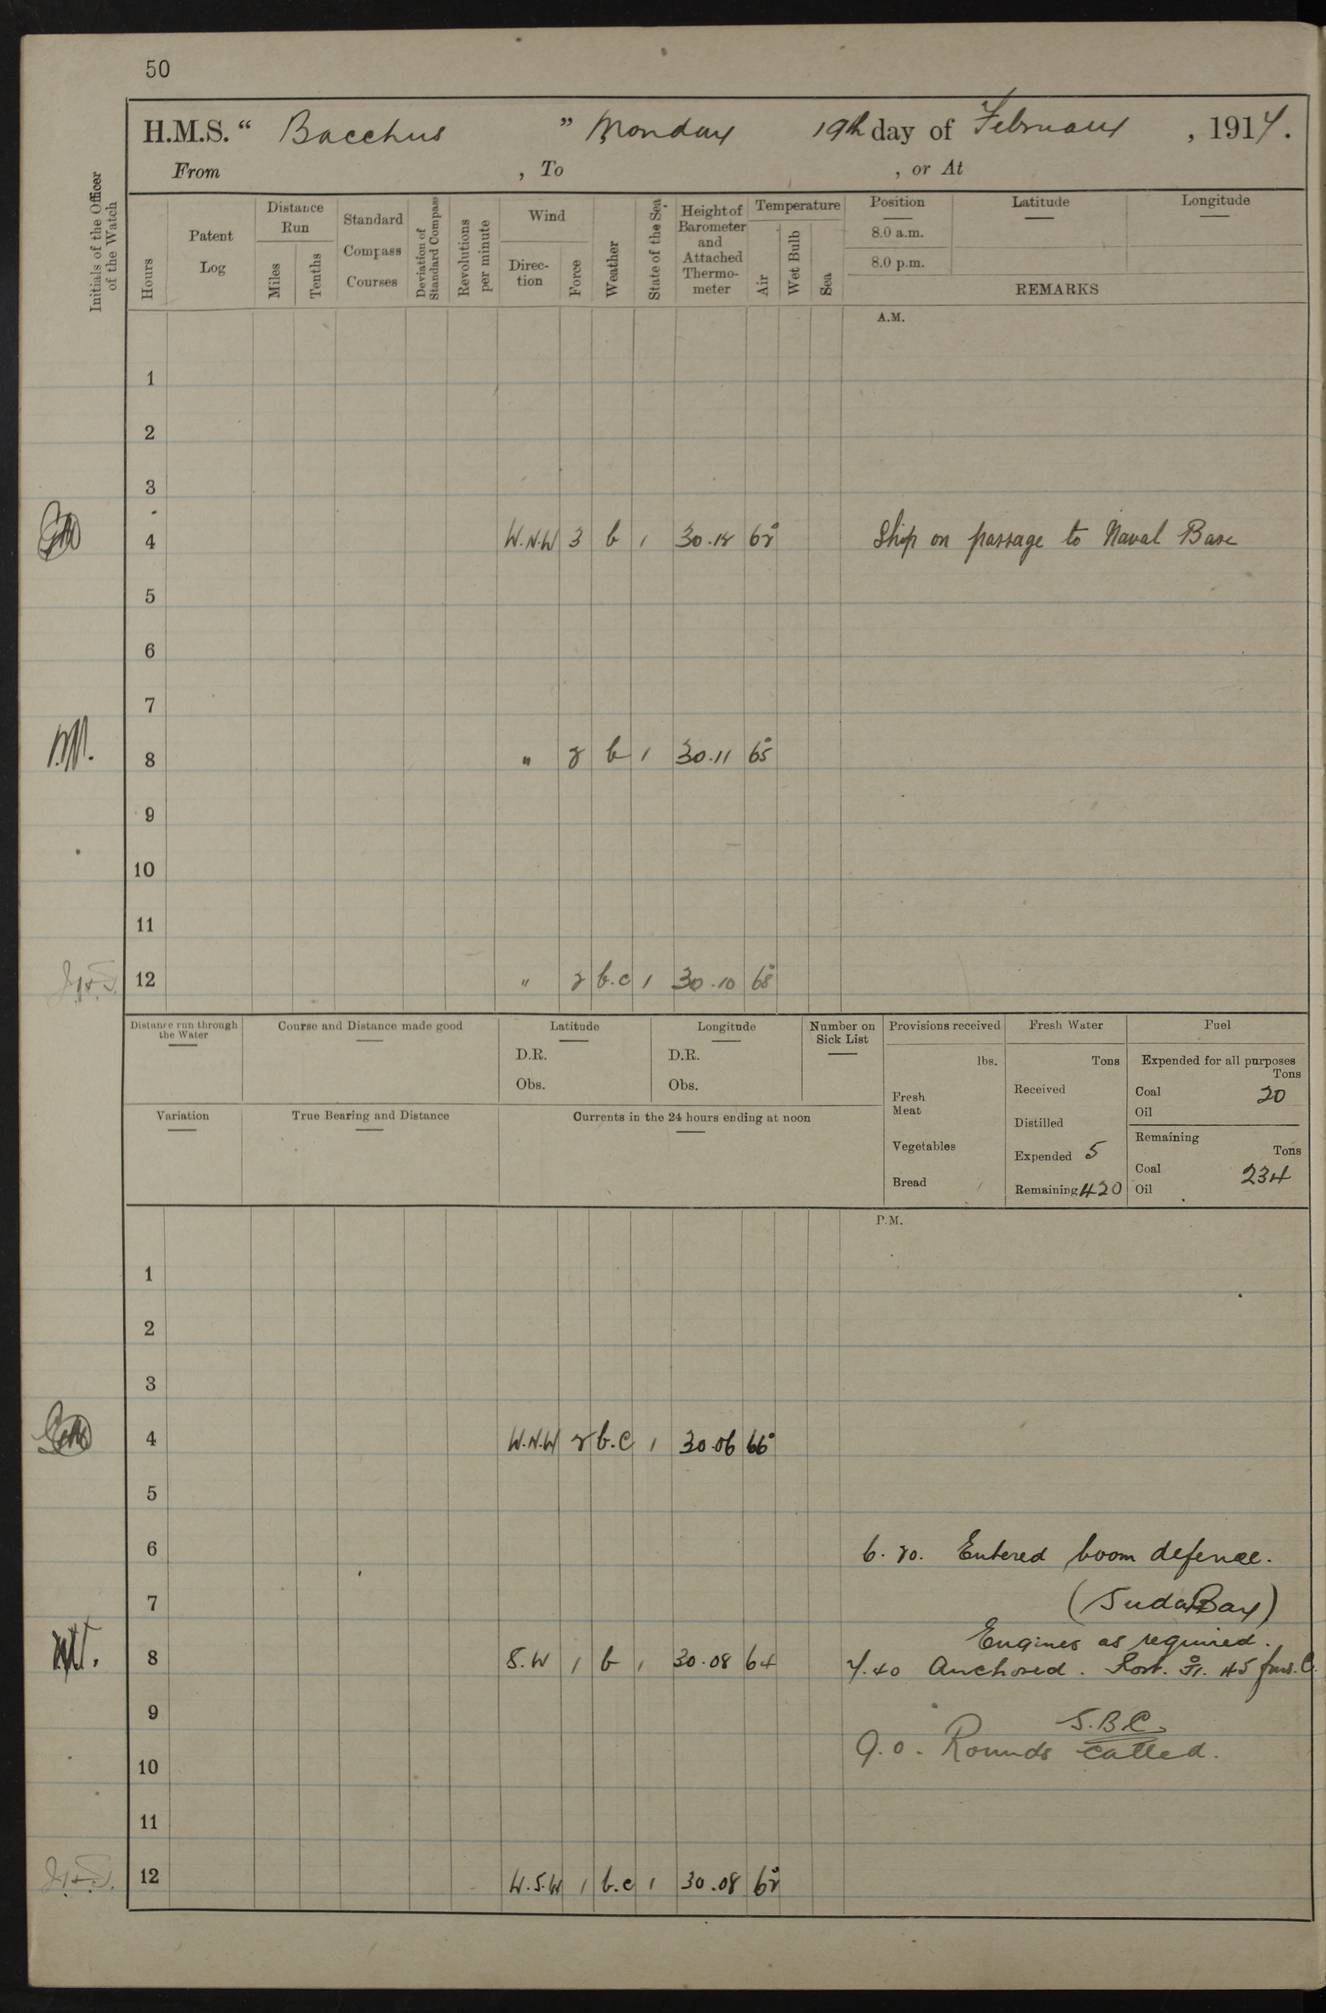 50
H.M.S. “ Bacchus ” Monday 19th day of February , 1917.
From , To , or At
Initials of the Officer of the Watch
Hours
Patent Log
Distance Run
Miles
Tenths
Standard Compass Courses
Deviation of Standard Compass
Revolutions per minute
Wind
Direction
Force
Weather
State of the Sea
Height of Barometer and Attached Thermometer
Temperature
Air
Wet Bulb
Sea
Position
8.0 a.m.
8.0 p.m.
Latitude
Longitude
REMARKS
A.M.
1
2
3
4 W.N.W 3 b 1 30.12 62° Ship on passage to Naval Base
5
6
7
8 " 2 b 1 30.11 65°
9
10
11
12 " 2 b.c 1 30.10 68°
Distance run through the Water
Course and Distance made good
Latitude
D.R.
Obs.
Longitude
D.R.
Obs.
Number on Sick List
Provisions received
lbs.
Fresh Meat
Vegetables
Bread
Fresh Water
Tons
Received
Distilled
Expended 5
Remaining 420
Fuel
Expended for all purposes
Tons
Coal 20
Oil
Remaining
Tons
Coal 234
Oil
Variation
True Bearing and Distance
Currents in the 24 hours ending at noon
P.M.
1
2
3
4 W.N.W 2 b.c 1 30.06 66°
5
6 6.20. Entered boom defence.
7 (Suda Bay)
Engines as required.
8 S.W 1 b 1 30.08 64 7.40 Anchored. Port. 45 fms.
9 S.B.C.
10 9.0. Rounds called.
11
12 W.S.W 1 b.c 1 30.08 62°